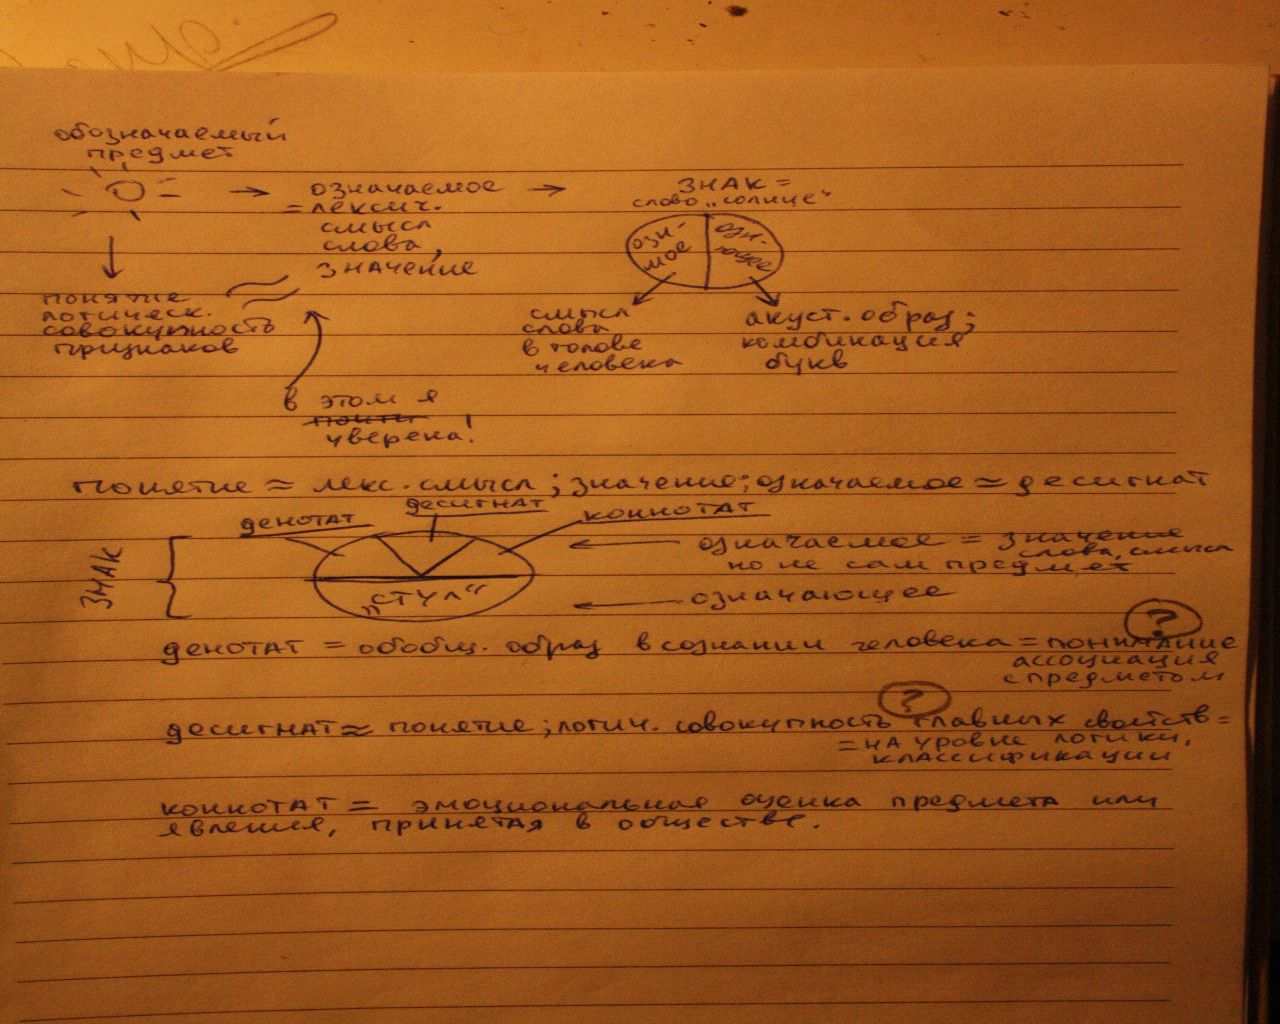 обозначаемый
предмет
означаемое
= лексич.
смысл
слова,
значение
ЗНАК =
слово „солнце“
озн-
мое
озн-
ющее
понятие
логическ.
совокупность
признаков
смысл
слова
в голове
человека
акуст. образ;
комбинация
букв
в этом я
уверена!
понятие ≈ лекс. смысл; значение; означаемое ≈ десигнат
денотат
десигнат
коннотат
ЗНАК
означаемое = значение
слова, смысл
но не сам предмет
„стул“
означающее
?
денотат = обобщ. образ в сознании человека = понимание
ассоциация
с предметом
?
десигнат ≈ понятие; логич. совокупность главных свойств =
= на уровне логики,
классификации
коннотат = эмоциональная оценка предмета или
явления, принятая в обществе.